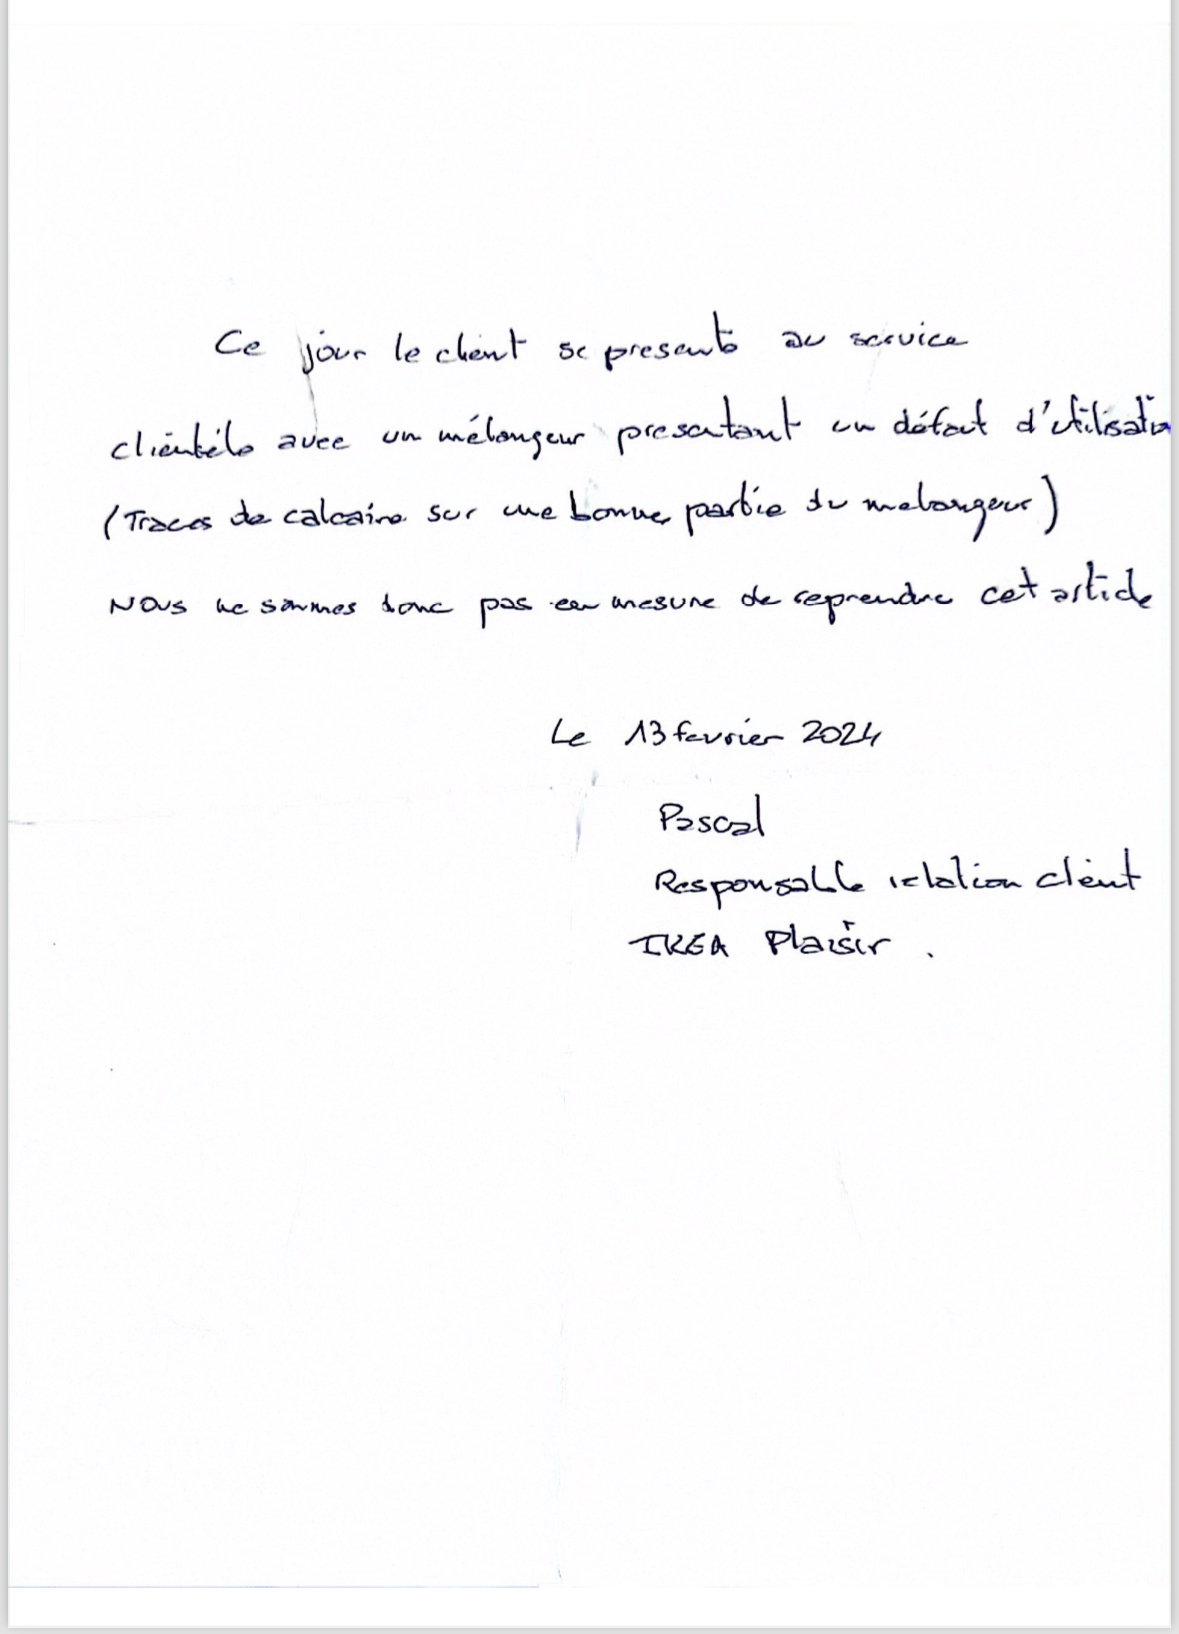 Ce jour le client se presente au service
clientéle avec un mélangeur presentant un défaut d'utilisation
(Traces de calcaire sur une bonne partie du melangeur)
Nous ne sommes donc pas en mesure de reprendre cet article
Le 13 fevrier 2024
Pascal
Responsable relation client
IKEA Plaisir.